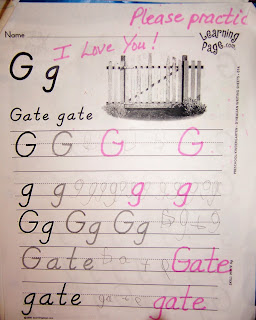 Please practic
Name
Learning
Page.com
I Love You!
G g
Gate gate
G G G G
g g g g
Gg Gg Gg
Gate Gate
gate gate